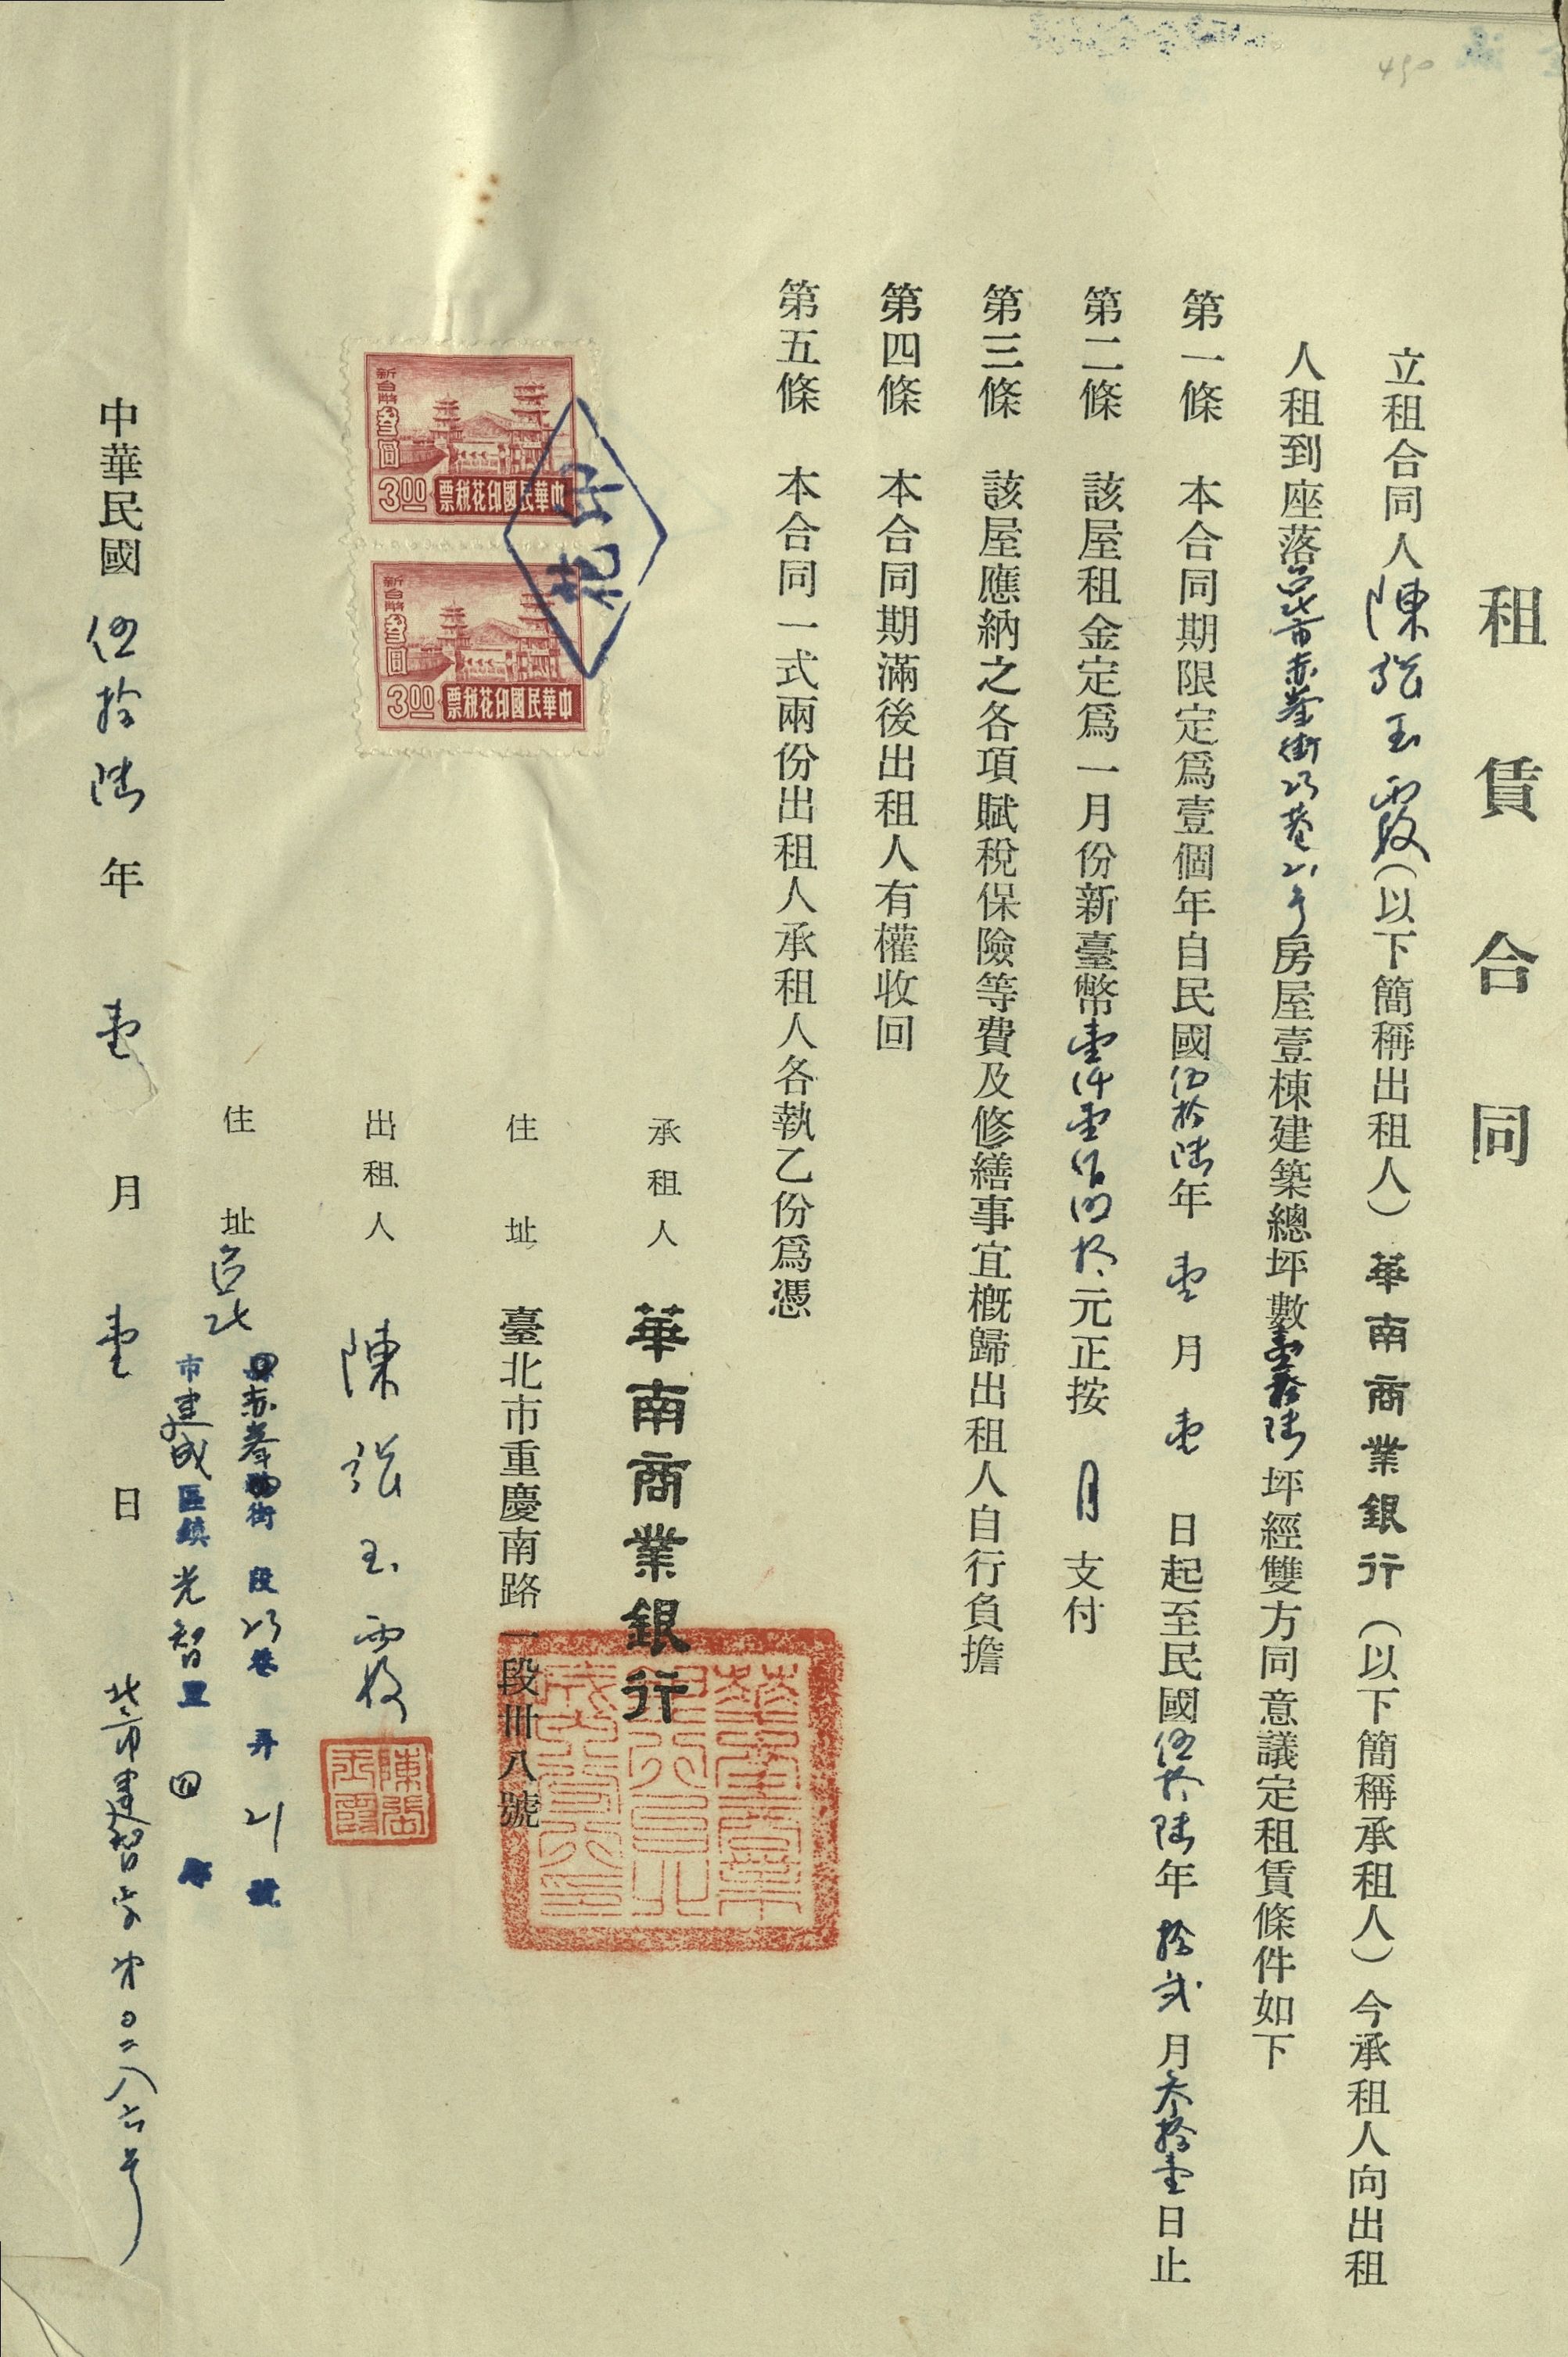 租賃合同
立租合同人陳張玉霞(以下簡稱出租人)華南商業銀行(以下簡稱承租人)今承租人向出租
人租到座落台北市赤峯街23巷21号房屋壹棟建築總坪數壹拾陸坪經雙方同意議定租賃條件如下
第一條 本合同期限定爲壹個年自民國伍拾陸年壹月壹日起至民國伍拾陸年拾弍月叁拾壹日止
第二條 該屋租金定爲一月份新臺幣壹仟壹佰四拾元正按月支付
第三條 該屋應納之各項賦稅保險等費及修繕事宜概歸出租人自行負擔
第四條 本合同期滿後出租人有權收回
第五條 本合同一式兩份出租人承租人各執乙份爲憑
承租人 華南商業銀行
住址 臺北市重慶南路一段卌八號
出租人 陳張玉霞
陳張玉霞
住址 台北
赤峯街 段23巷 弄21號
市建成區鎮光智里四
新台幣叁圓
3.00
票稅花印國民華中
新台幣叁圓
3.00
票稅花印國民華中
中華民國伍拾陸年壹月壹日
北市建智字第0二八六号
490